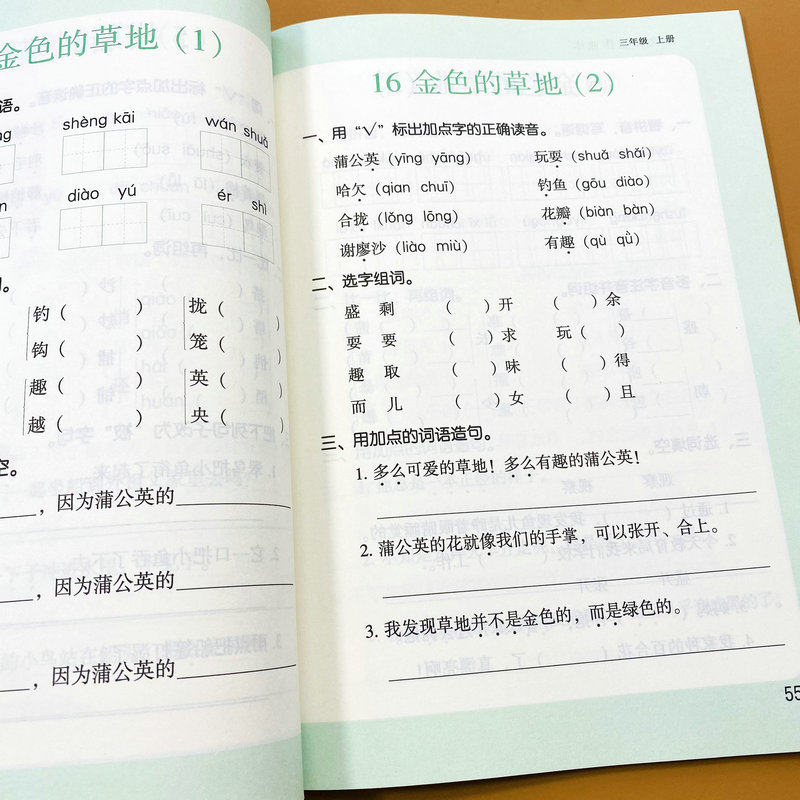 金色的草地（1）
语。
ng shèng kāi wán shuǎ
diào yú ér shì
钓（ ） 拢（
钩（ ） 笼（
趣（ ） 英（
越（ ） 央（
空。
，因为蒲公英的
，因为蒲公英的
，因为蒲公英的
三年级 上册
16 金色的草地（2）
一、用“√”标出加点字的正确读音。
蒲公英（yīng yāng） 玩耍（shuǎ shǎi）
哈欠（qian chuī） 钓鱼（gōu diào）
合拢（lǒng lōng） 花瓣（biàn bàn）
谢廖沙（liào miù） 有趣（qù qǜ）
二、选字组词。
盛 剩 （ ）开 （ ）余
耍 要 （ ）求 玩（ ）
趣 取 （ ）味 （ ）得
而 儿 （ ）女 （ ）且
三、用加点的词语造句。
1. 多么可爱的草地！多么有趣的蒲公英！
2. 蒲公英的花就像我们的手掌，可以张开、合上。
3. 我发现草地并不是金色的，而是绿色的。
55